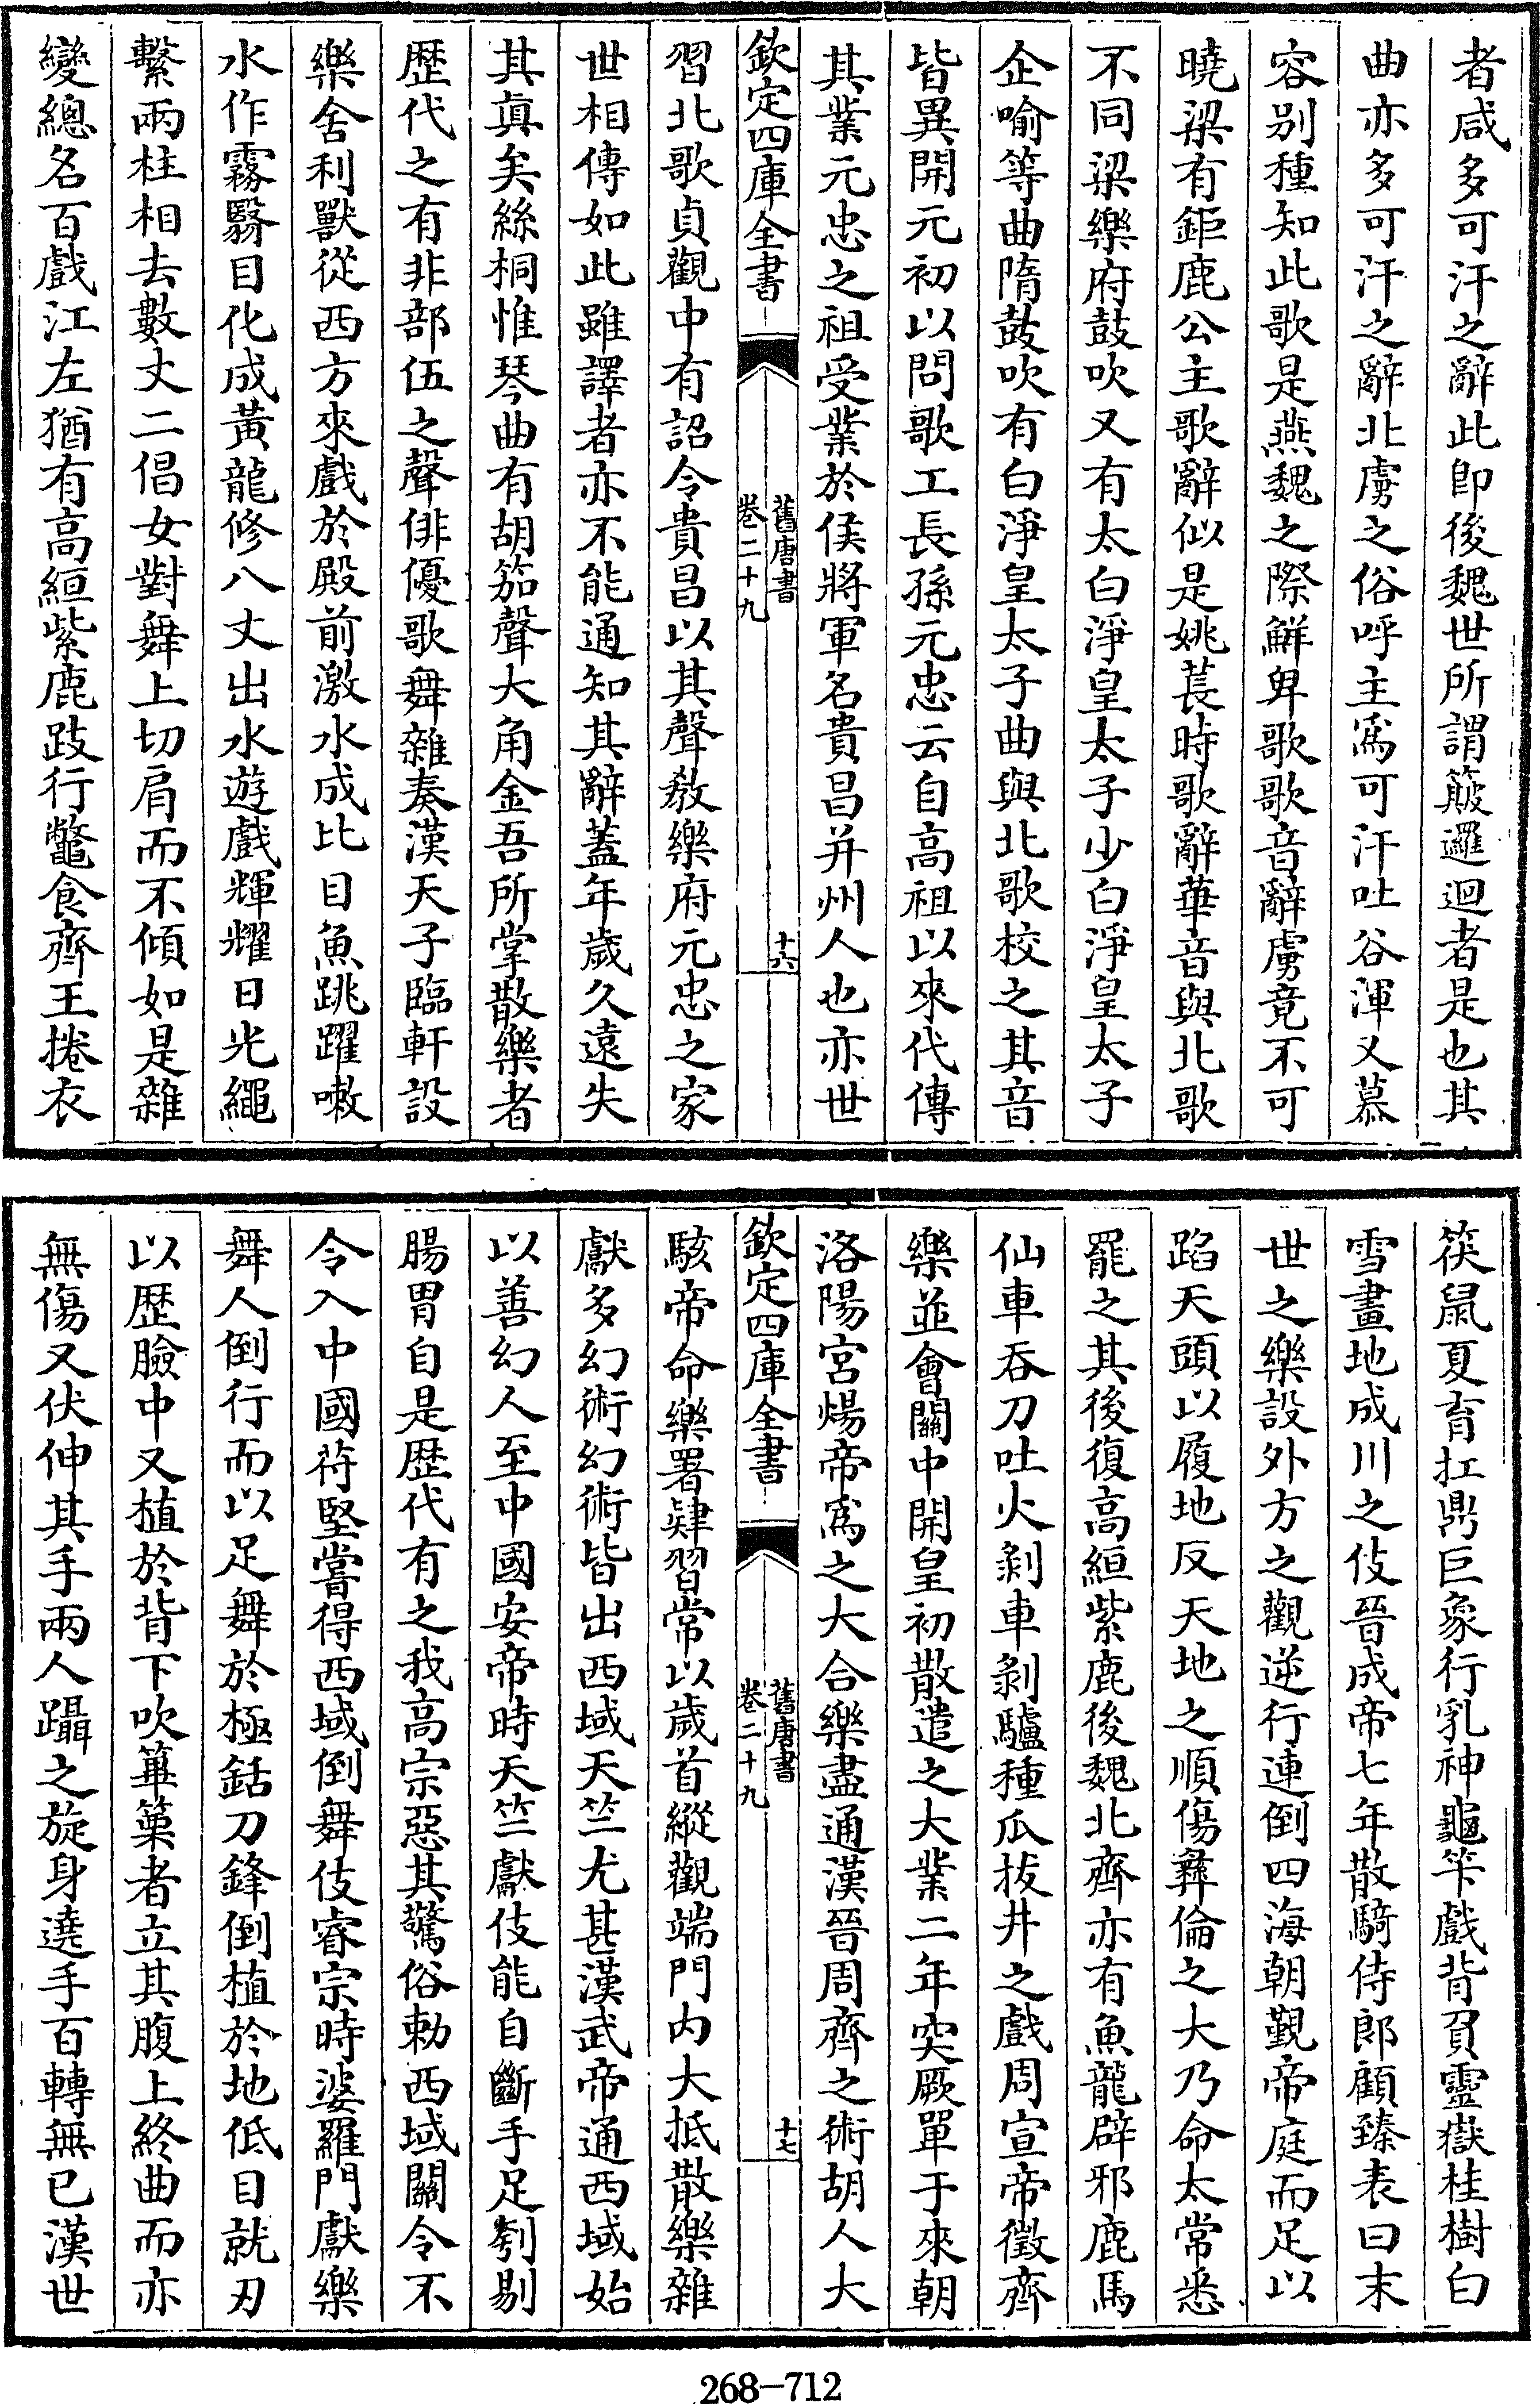 者咸多可汗之辭此即後魏世所謂簸邏迴者是也其
曲亦多可汗之辭北虜之俗呼主爲可汗吐谷渾又慕
容别種知此歌是燕魏之際鮮卑歌歌音辭虜竟不可
曉梁有鉅鹿公主歌辭似是姚萇時歌辭華音與北歌
不同梁樂府鼓吹又有太白淨皇太子少白淨皇太子
企喻等曲隋鼓吹有白淨皇太子曲與北歌校之其音
皆異開元初以問歌工長孫元忠云自高祖以來代傳
其業元忠之祖受業於侯將軍名貴昌并州人也亦世
欽定四庫全書
舊唐書
卷二十九
十六
習北歌貞觀中有詔令貴昌以其聲教樂府元忠之家
世相傳如此雖譯者亦不能通知其辭蓋年歲久遠失
其真矣絲桐惟琴曲有胡笳聲大角金吾所掌散樂者
歴代之有非部伍之聲俳優歌舞雜奏漢天子臨軒設
樂舍利獸從西方來戲於殿前激水成比目魚跳躍嗽
水作霧翳日化成黃龍修八丈出水遊戲輝耀日光繩
繫兩柱相去數丈二倡女對舞上切肩而不傾如是雜
變總名百戲江左猶有高絙紫鹿跂行鼈食齊王捲衣
筰鼠夏育扛鼎巨象行乳神龜抃戲背負靈嶽桂樹白
雪畫地成川之伎晉成帝七年散騎侍郎顧臻表曰末
世之樂設外方之觀逆行連倒四海朝觀帝庭而足以
蹈天頭以履地反天地之順傷彝倫之大乃命太常悉
罷之其後復高絙紫鹿後魏北齊亦有魚龍辟邪鹿馬
仙車吞刀吐火剝車剝驢種瓜拔井之戲周宣帝徵齊
樂並會關中開皇初散遣之大業二年突厥單于來朝
洛陽宮煬帝爲之大合樂盡通漢晉周齊之術胡人大
欽定四庫全書
舊唐書
卷二十九
十七
駭帝命樂署肄習常以歲首縱觀端門内大抵散樂雜
獻多幻術幻術皆出西域天竺尤甚漢武帝通西域始
以善幻人至中國安帝時天竺獻伎能自斷手足刳剔
腸胃自是歴代有之我高宗惡其驚俗勅西域關令不
令入中國苻堅嘗得西域倒舞伎睿宗時婆羅門獻樂
舞人倒行而以足舞於極銛刀鋒倒植於地低目就刃
以歴臉中又植於背下吹篳篥者立其腹上終曲而亦
無傷又伏伸其手兩人躡之旋身遶手百轉無已漢世
268-712